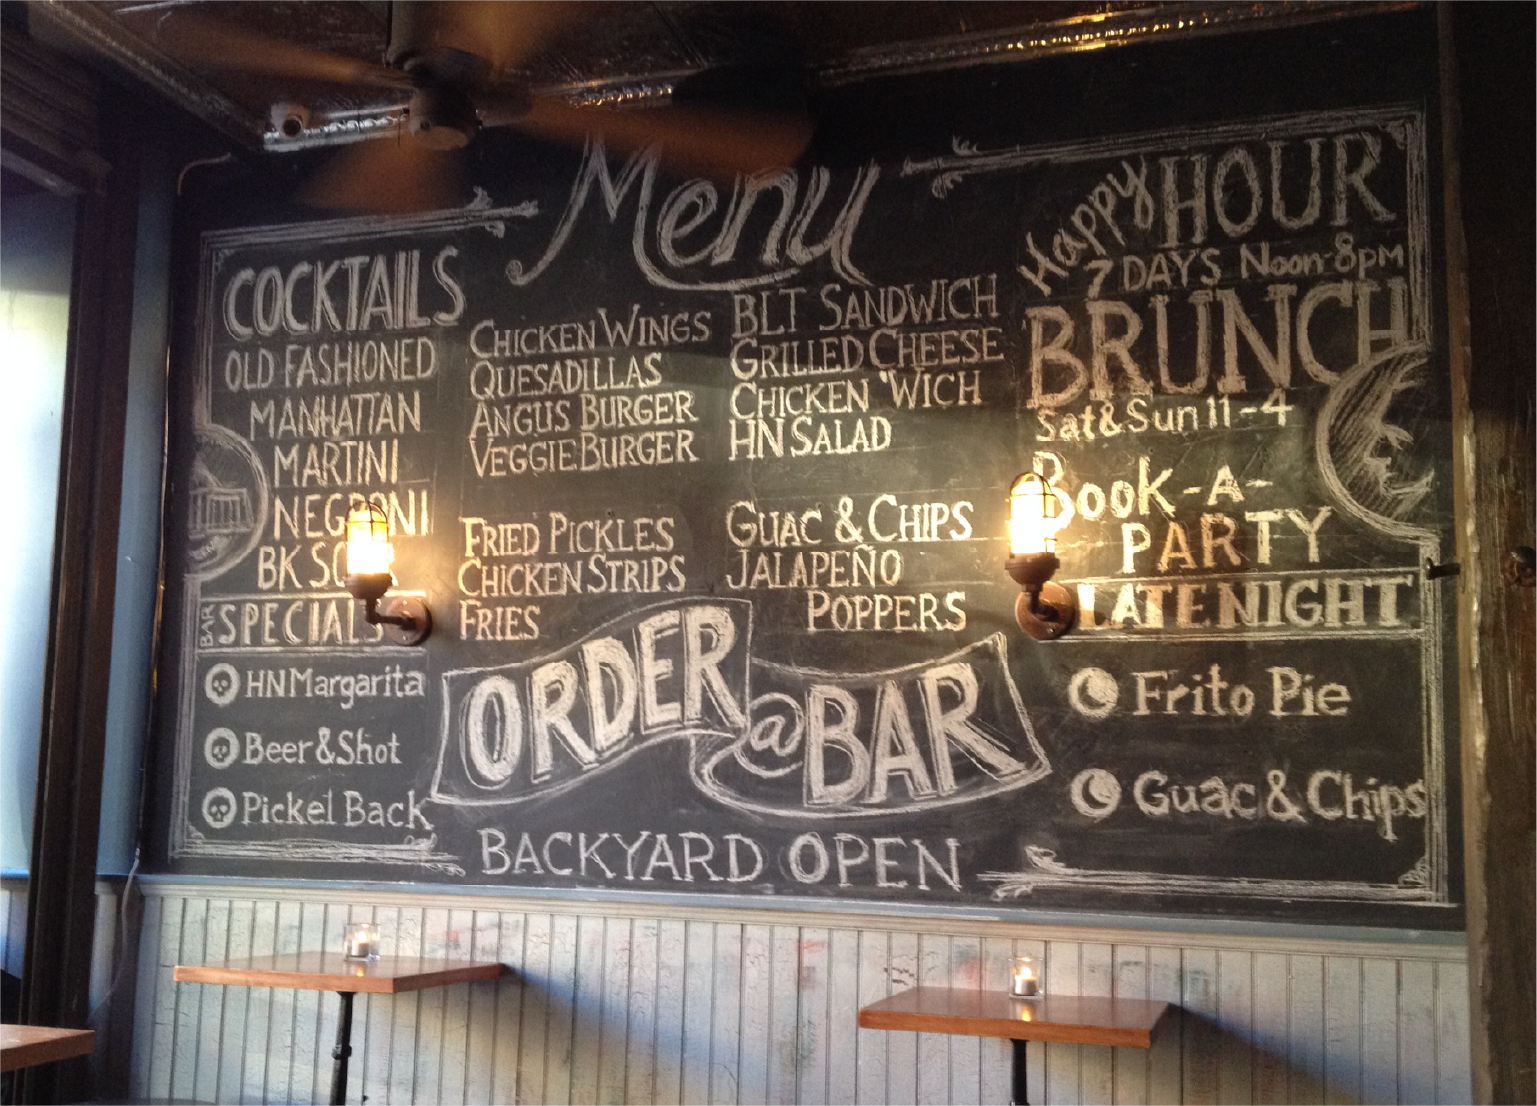 Menu
COCKTAILS
OLD FASHIONED
MANHATTAN
MARTINI
NEGRONI
BK
BAR SPECIALS
HN Margarita
Beer & Shot
Pickel Back
CHICKEN WINGS
QUESADILLAS
ANGUS BURGER
VEGGIE BURGER
FRIED PICKLES
CHICKEN STRIPS
FRIES
BLT SANDWICH
GRILLED CHEESE
CHICKEN 'WICH
HN SALAD
GUAC & CHIPS
JALAPEÑO
POPPERS
ORDER
@ BAR
BACKYARD OPEN
Happy HOUR
7 DAYS Noon-8pm
BRUNCH
Sat & Sun 11-4
BOOK-A-
PARTY
LATE NIGHT
Frito Pie
Guac & Chips